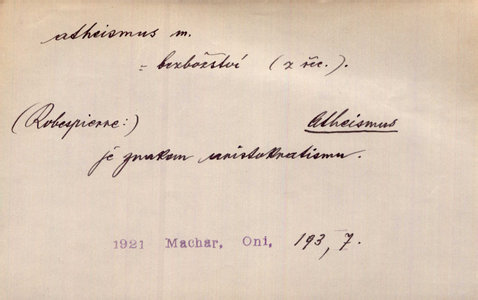 atheismus m.
= bezbožství (z řec.).
(Robespierre:) Atheismus
je znakem aristokratismu.
1921 Machar, Oni, 193, 7.